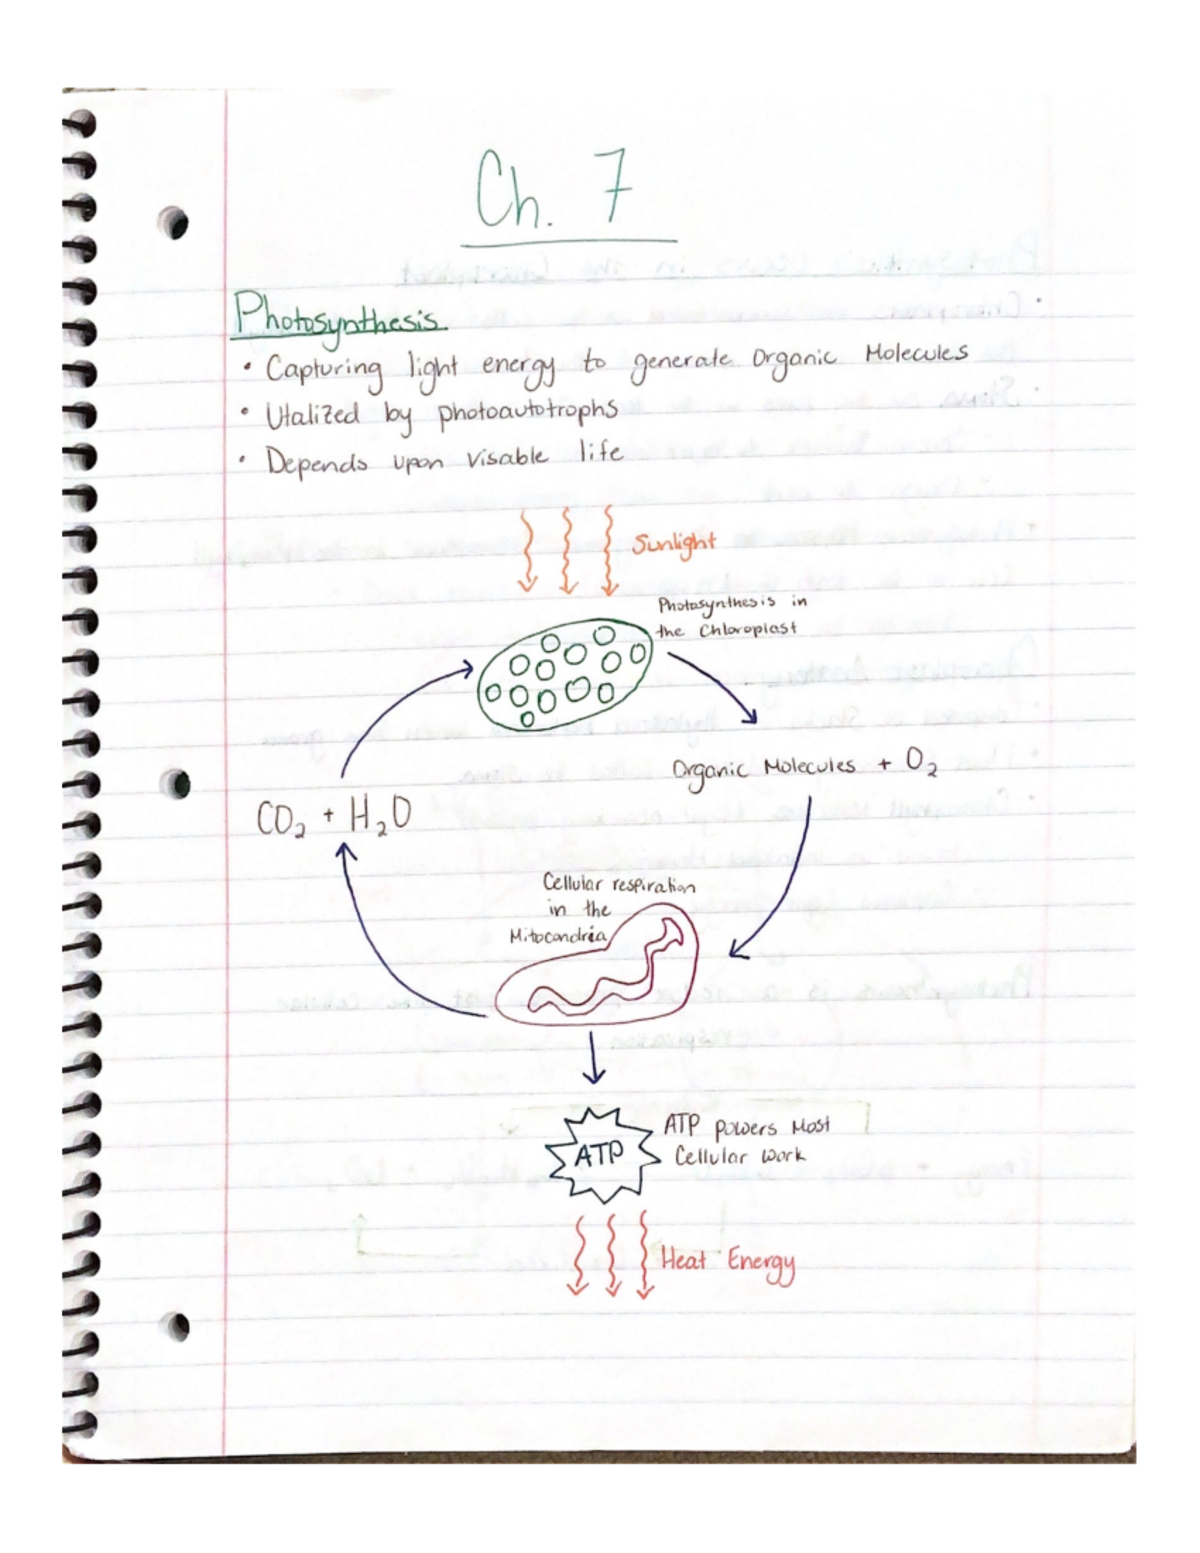 Ch. 7
Photosynthesis
• Capturing light energy to generate Organic Molecules
• Utalized by photoautotrophs
• Depends upon visable life
Sunlight
Photosynthesis in
the Chloroplast
Organic Molecules + O₂
CO₂ + H₂O
Cellular respiration
in the
Mitocondria
ATP
ATP powers Most
Cellular work
Heat Energy